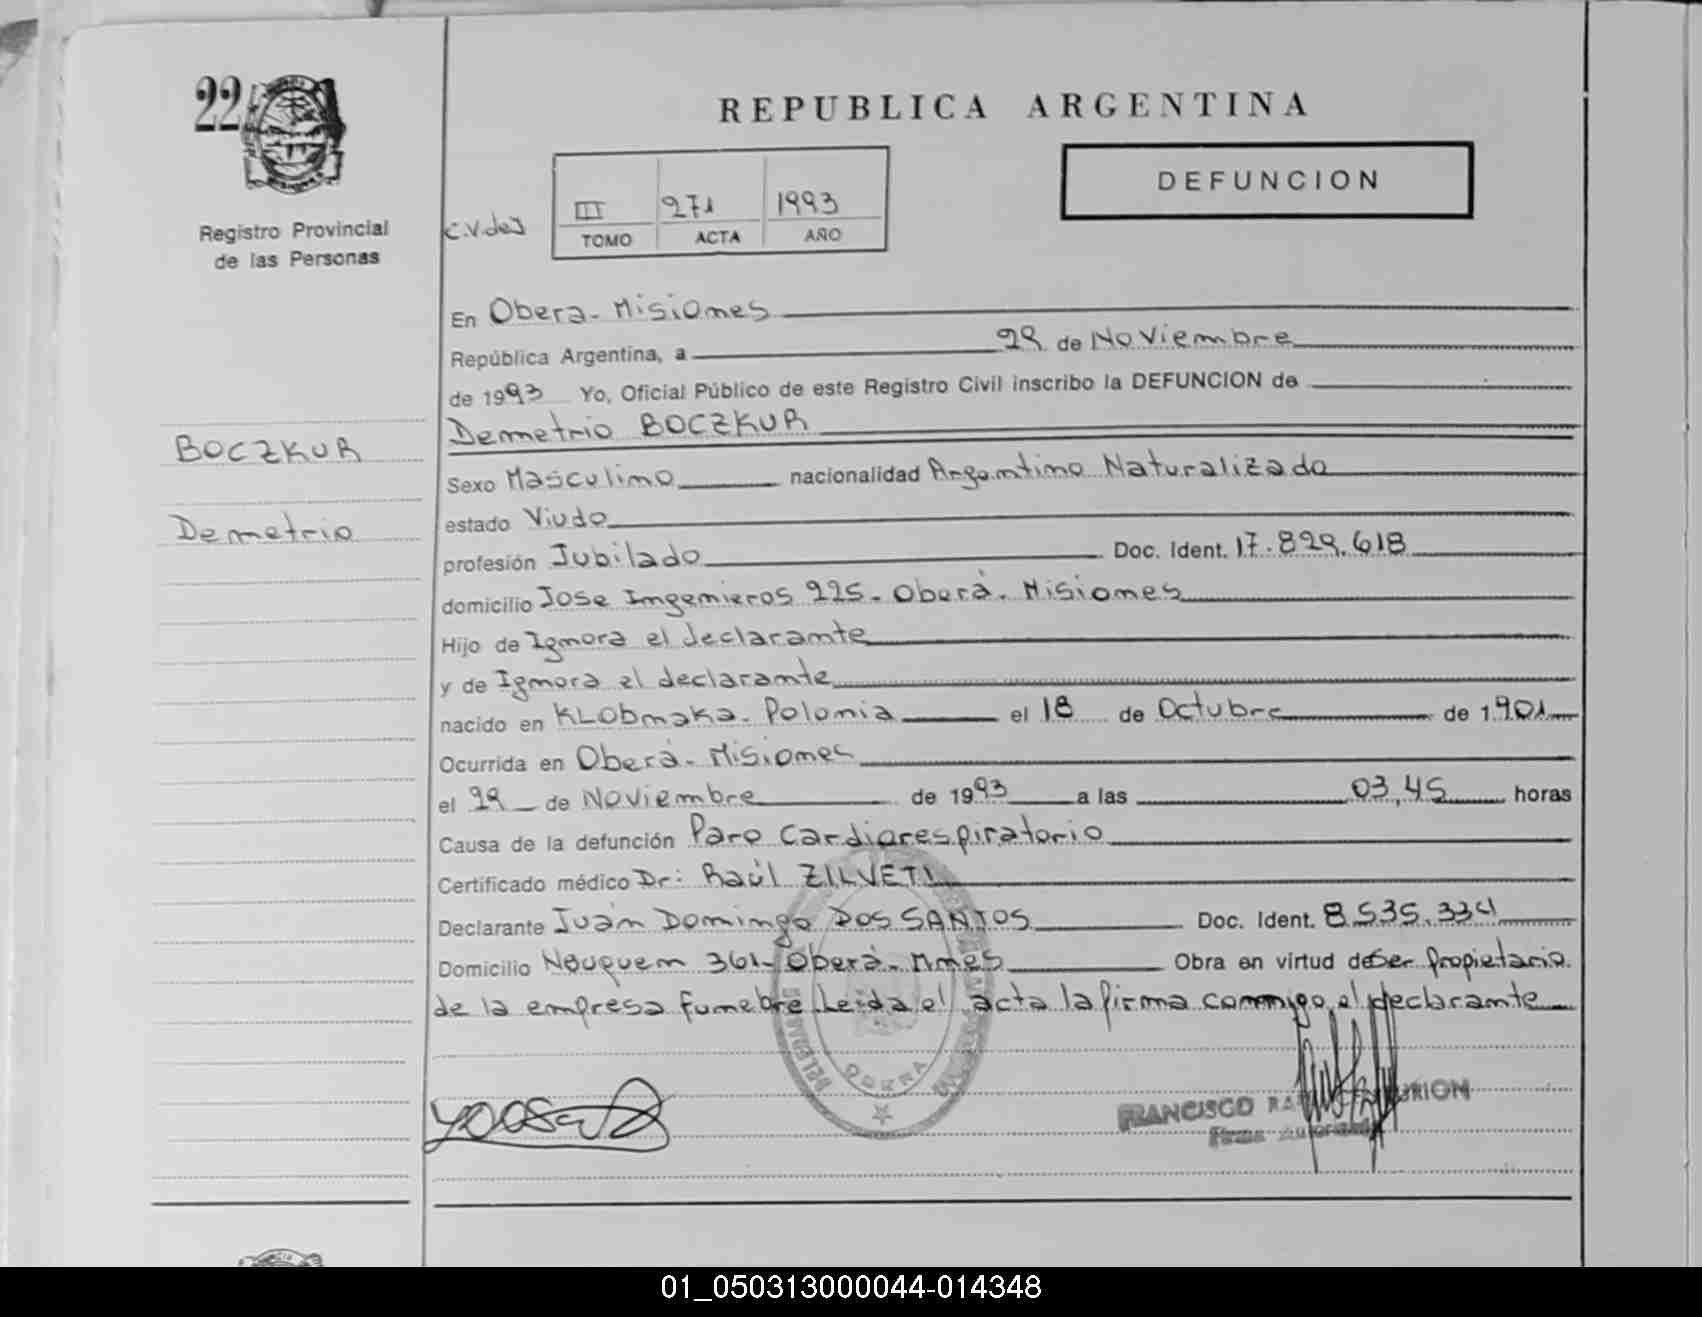 22
REPUBLICA ARGENTINA
DEFUNCION
Registro Provincial
de las Personas
C.V.deJ
III 271 1993
TOMO ACTA AÑO
En Obera - Misiones
República Argentina, a 29 de Noviembre
de 1993 Yo, Oficial Público de este Registro Civil inscribo la DEFUNCION de
BOCZKUR
Demetrio
Demetrio BOCZKUR
Sexo Masculino nacionalidad Argentino Naturalizado
estado Viudo
profesión Jubilado Doc. Ident. 17.829.618
domicilio Jose Ingenieros 225 - Oberá - Misiones
Hijo de Ignora el declarante
y de Ignora el declarante
nacido en KLobnaka - Polonia el 18 de Octubre de 1901
Ocurrida en Oberá - Misiones
el 29 de Noviembre de 1993 a las 03,45 horas
Causa de la defunción Paro Cardiorespiratorio
Certificado médico Dr: Raúl ZILVETI
Declarante Juan Domingo DOS SANTOS Doc. Ident. 8.535.334
Domicilio Neuquen 361 - Oberá - Mnes Obra en virtud de Ser propietario
de la empresa funebre Leida el acta la firma conmigo el declarante
OBERA
FRANCISCO
Firma Autorizada
01_050313000044-014348